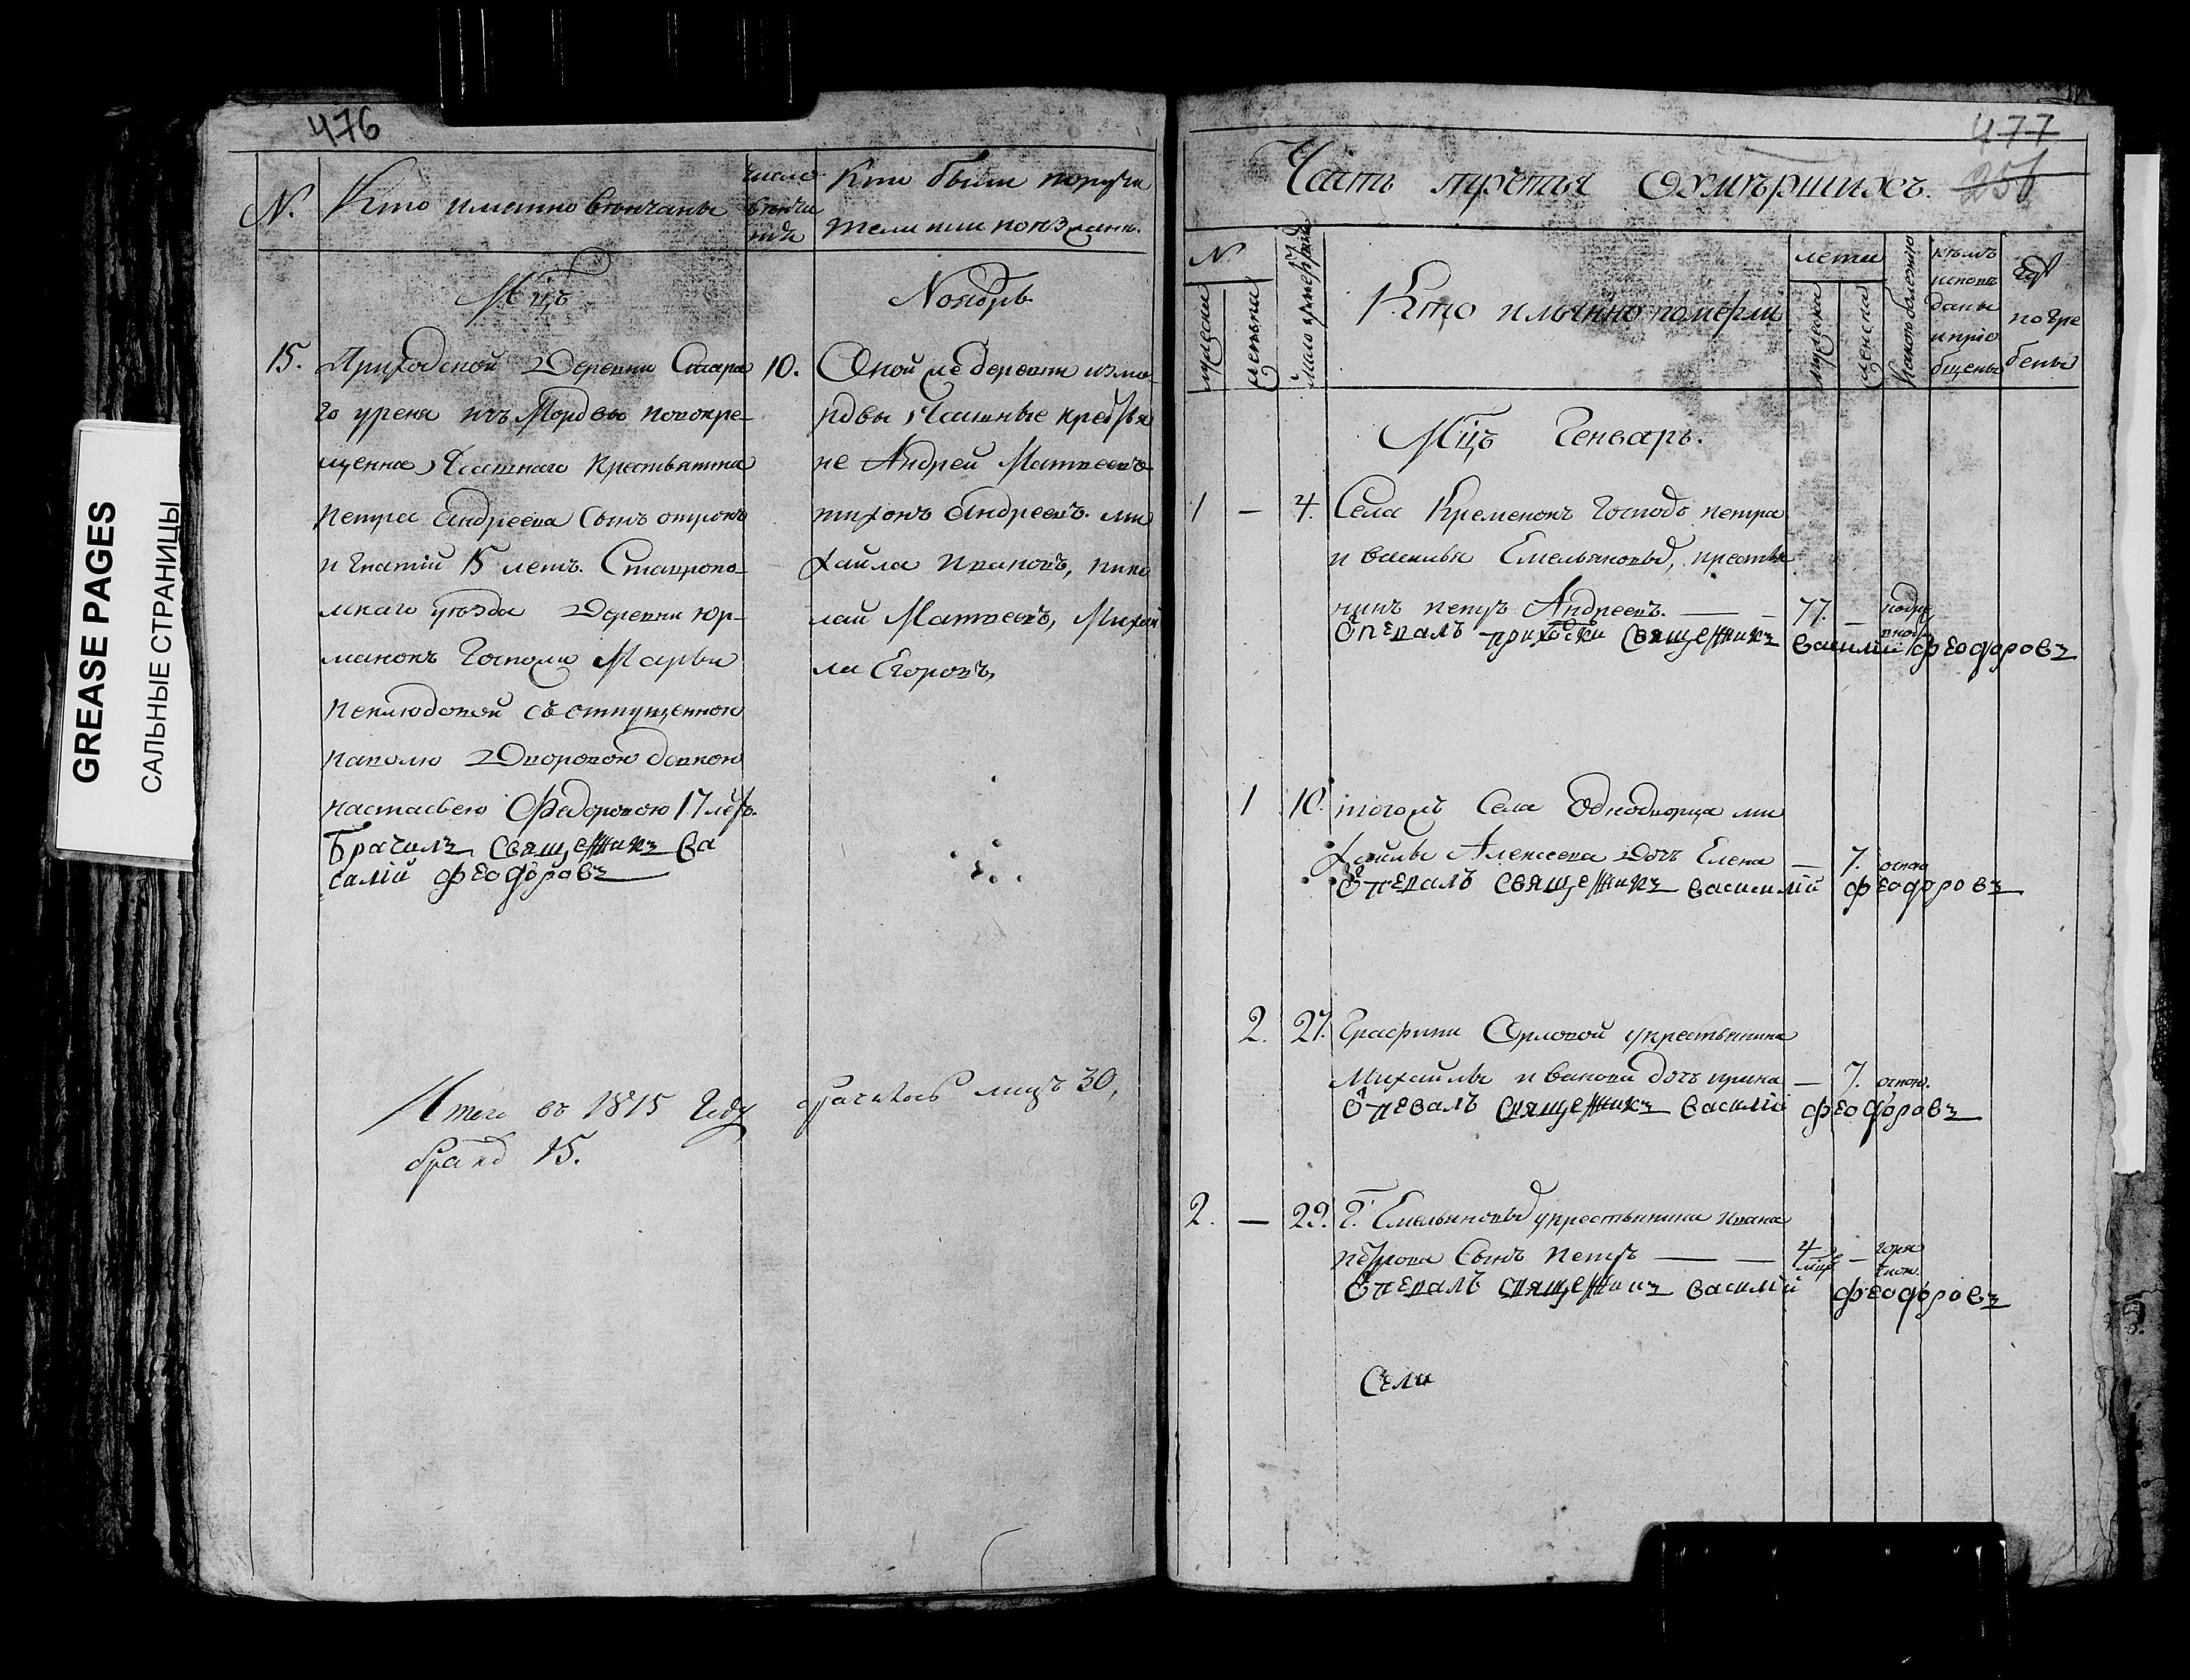 GREASE PAGES
САЛЬНЫЕ СТРАНИЦЫ
476
N.
Кто именно венчаны
число
венча
нiя
Кто были поручи
тели или поезжанъ.
Мцъ
Ноябрь
15.
Приходской Деревни Стара
го урена изъ Мордвы новокре-
щенна Ясашнаго крестьянина
петра Андреева Сынъ отрокъ
игнатiй 15 летъ. Ставропо-
лскаго уезда Деревни юр-
манокъ Госпожи Марьи
неклюдовой съ отпущенною
наволю Дворовою девкою
настасьею Федоровою 17 летъ.
Брачилъ Священникъ Ва
силiй феодоровъ
10.
Оной же деревни измо-
рдвы Ясашные крестья
не Андрей Матвеевъ
тихонъ Андреевъ. ми
хайла ивановъ, нико
лай Матвеевъ, Михай
ла Егоровъ,
Итого въ 1815 Году
браковъ 15.
лицъ 30,
477
256
Часть третья Оумершихъ.
N
мужеска
женска
число умершихъ
Кто имянно померли
лета
мужеска
женска
какою болезнiю
кемъ
испове
даны
иприо
бщены
где
погре
бены
Мцъ Генварь.
1 — 4. Села Кременокъ Господъ петра
и василья Емельяновыхъ, крестья
нинъ петръ Андреевъ. — 77. —
Отпевалъ приходски Священникъ василiй феодоровъ
1 10. тогожъ Села Однодворца ми
хайлы Алексеева Дочь Елена — 7. оспою
Отпевалъ священникъ василiй феодоровъ
2. 27. Графини Орловой укрестьянина
Михайлы иванова дочь ирина — 7. оспою.
Отпевалъ священникъ василiй феодоровъ
2. — 29. Г. Емельяновыхъ укрестьянина ивана
петрова Сынъ петръ — 4 —
Отпевалъ священникъ василiй феодоровъ
Села